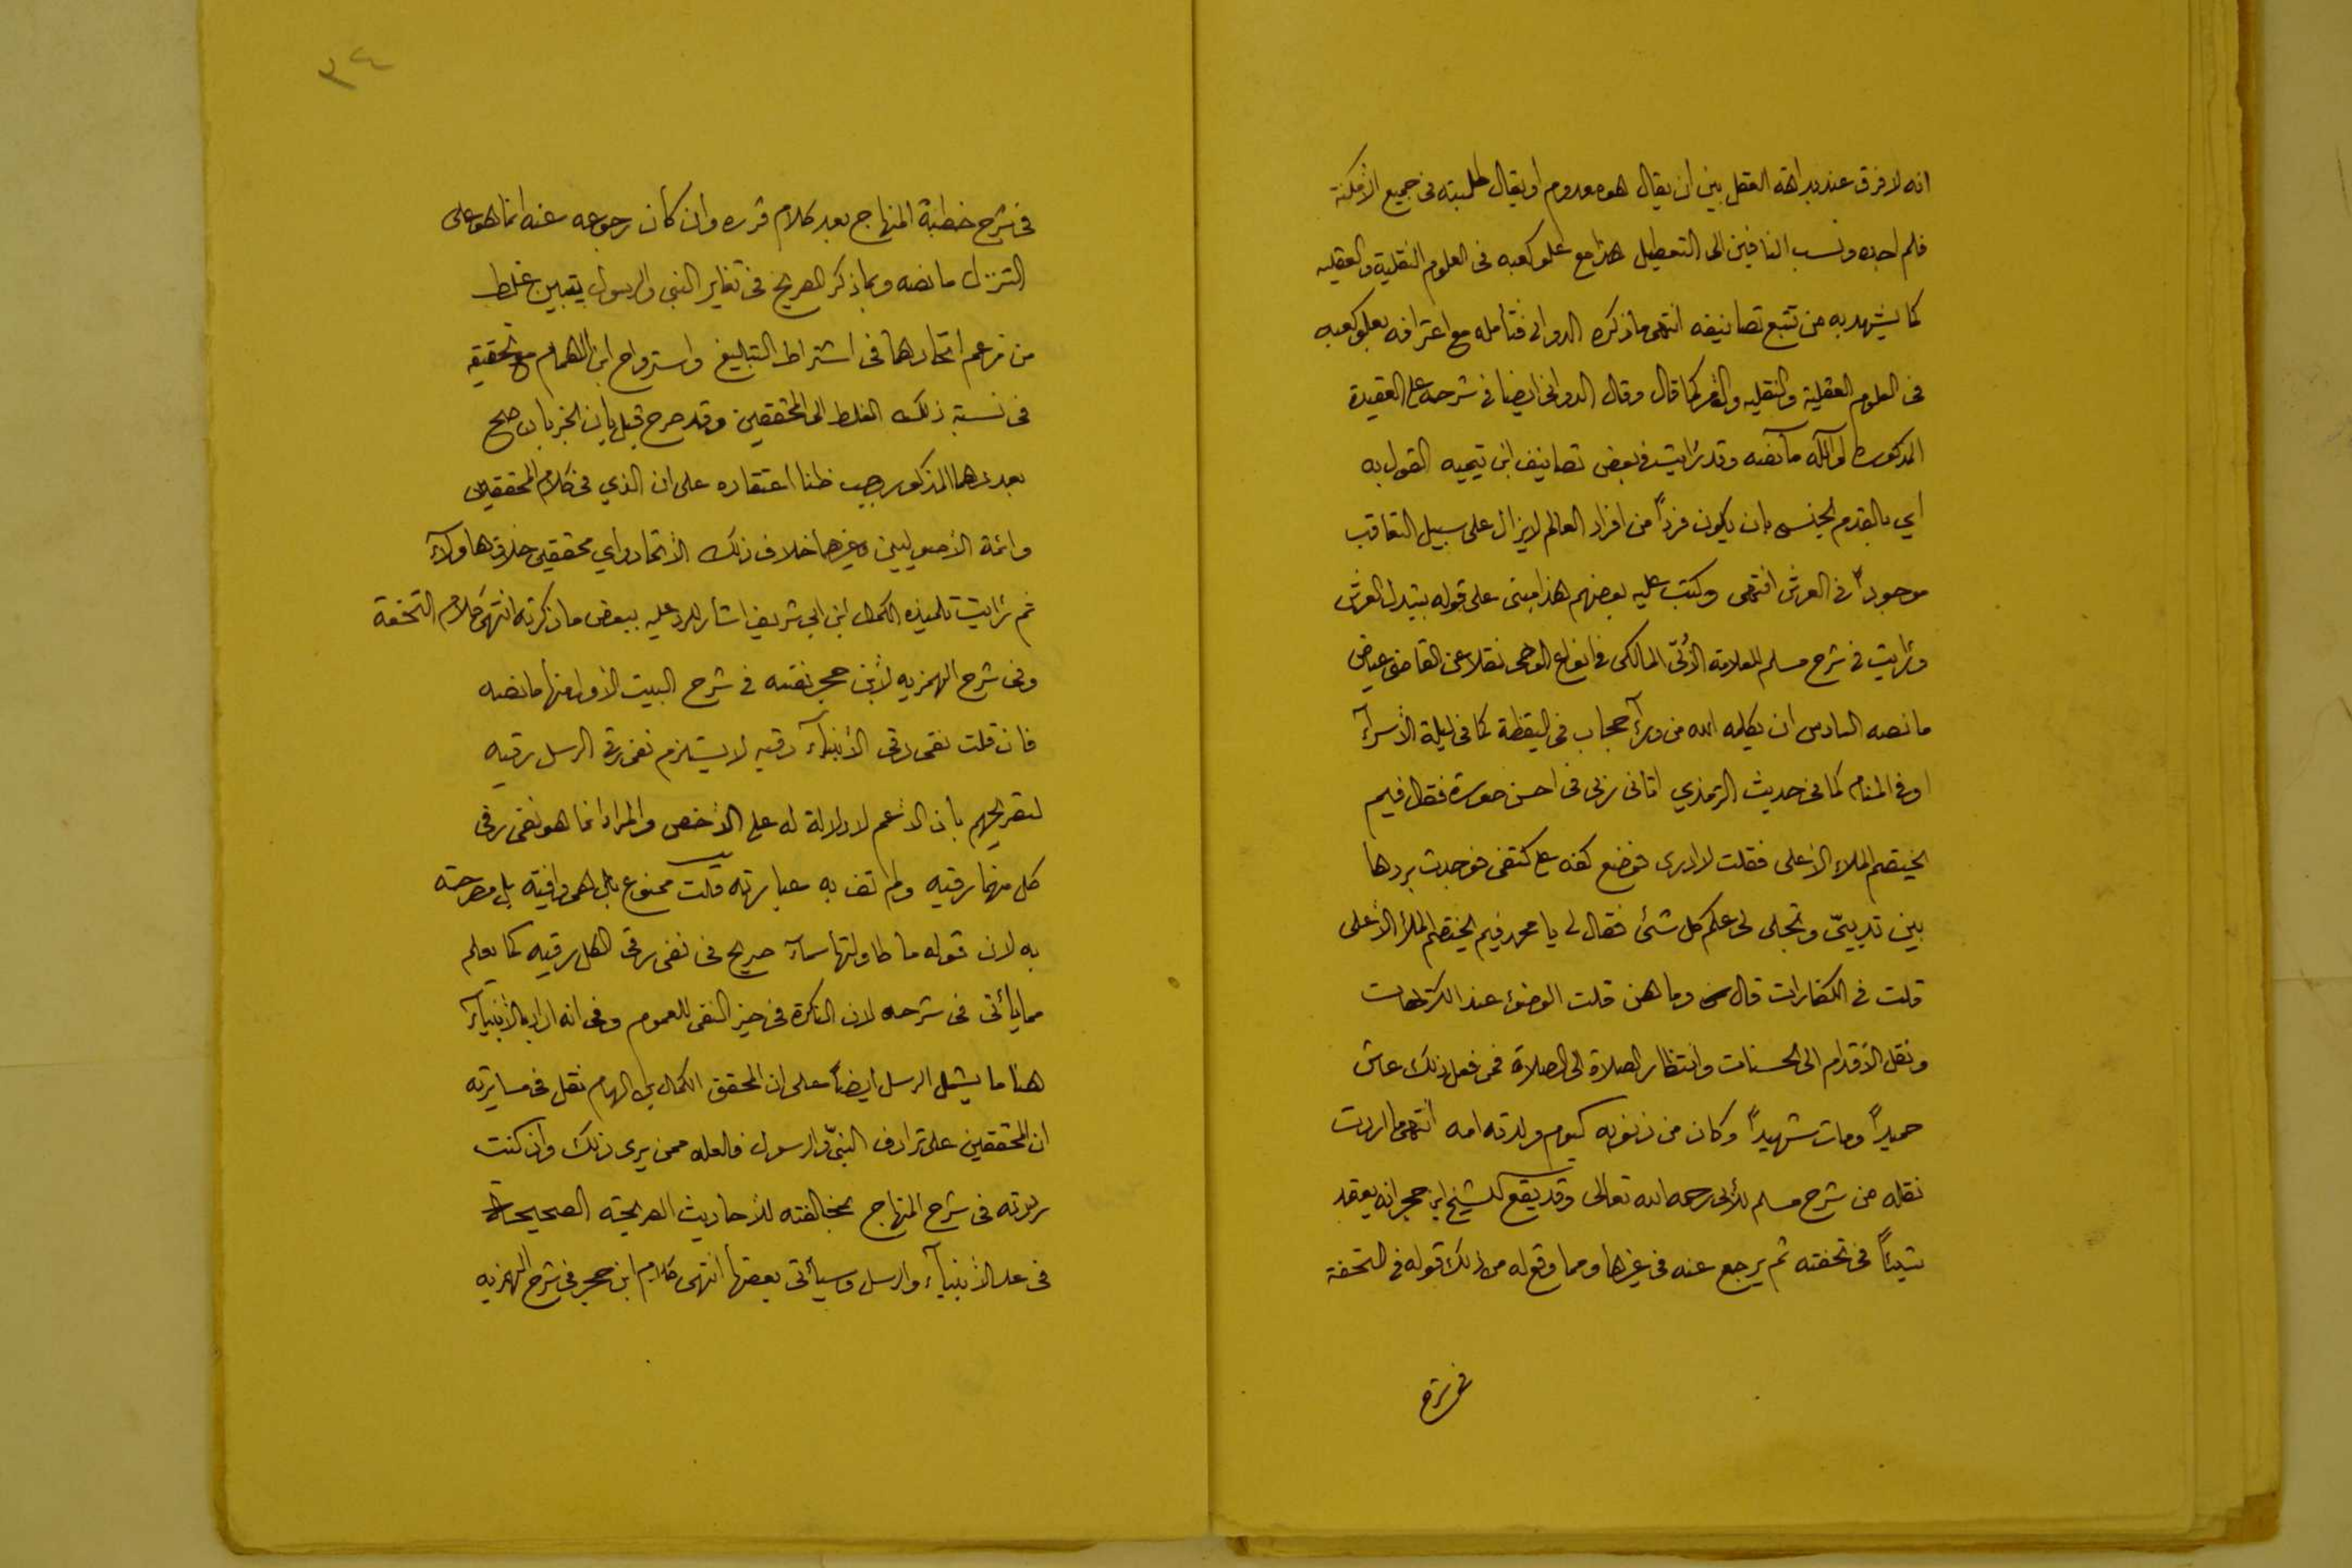 انه لا فرق عند بداهة العقل بين ان يقال هو معدوم او يقال طلبته في جميع الأمكنة
فلم اجده ونسب النافين الى التعطيل هذا مع علو كعبه في العلوم النقلية والعقليه
كما يشهد به من تتبع تصانيفه انتهى ما ذكره الدواني فتأمله مع اعترافه بعلو كعبه
في العلوم العقلية والنقليه كما قال وقال الدواني ايضا في شرحه على العقيدة
المذكوره ما نصه وقد رأيت في بعض تصانيف ابن تيميه القول به
اي بالقدم الجنسى بان يكون فرداً من افراد العالم لا يزال على سبيل التعاقب
موجوداً في العرش انتهى وكتب عليه بعضهم هذا مبنى على قوله بتبدل العرش
ورأيت في شرح مسلم للعلامة الأبّي المالكى في انواع الوحى نقلا عن القاضى عياض
ما نصه السادس ان يكلمه الله من ورآء حجاب في اليقظة كما في ليلة الأسرآء
او في المنام كما في حديث الترمذي اتانى ربى في احسن صورة فقال فيم
يختصم الملاء الأعلى فقلت لا ادرى فوضع كفه على كتفى فوجدت بردها
بين ثدييّ وتجلى لى علم كل شئ فقال لى يا محمد فيم يختصم الملأ الأعلى
قلت في الكفارات قال وما هن قلت الوضوء عند الكرهات
ونقل الأقدام الى الحسنات وانتظار الصلاة الى الصلاة فمن فعل ذلك عاش
حميداً ومات شهيداً وكان من ذنوبه كيوم ولدته امه انتهى ما اردت
نقله من شرح مسلم للأبى رحمه الله تعالى وقد يقع للشيخ ابن حجر انه يعتمد
شيئاً في تحفته ثم يرجع عنه في غيرها ومما وقع له من ذلك قوله في التحفة
في شرح
٣٤
في شرح خطبة المنهاج بعد كلام قرره وان كان رجوعه عنه انما هو على
التنزل ما نصه وبما ذكر الصريح في تغاير النبي والرسول يتبين غلط
من زعم اتحادهما في اشتراط التبليغ واسترواح ابن الهمام مع تحقيقه
في نسبة ذلك الغلط الى المحققين وقد صرح قبل بان الخبر بان صح
بعددهما المذكور وجب ظنا اعتقاده على ان الذي في كلام المحققين
وائمة الأصوليين وغيرهما خلاف ذلك الأتحاد واي محققين خلاف هاولآء
ثم رأيت تلميذه الكمال ابن ابي شريف اشار للرد عليه ببعض ما ذكرته انتهى كلام التحفة
وفي شرح الهمزيه لأبن حجر نفسه في شرح البيت الأول منها ما نصه
فان قلت نفى رقى الأنبيآء رقيه لا يستلزم نفى رقى الرسل رقيه
لتصريحهم بأن الأعم لا دلالة له على الأخص والمراد انما هو نفى رقى
كل منهما رقيه ولم تف به عبارته قلت ممنوع بل هى وافية بل مصرحة
به لان قوله ما طاولتها سمآء صريح في نفى رقى الكل رقيه كما يعلم
مما يأتى في شرحه لان النكرة في حيز النفى للعموم وفى انه اراد بالأنبيآء
هنا ما يشمل الرسل ايضاً على ان المحقق الكمال بن الهمام نقل في مسايرته
ان المحققين على ترادف النبىّ والرسول فلعله ممن يرى ذلك وان كنت
رددته في شرح المنهاج بمخالفته للأحاديث الصريحة الصحيحة
في عد الأنبيآء والرسل وسيأتى بعضها انتهى كلام ابن حجر في شرح الهمزيه